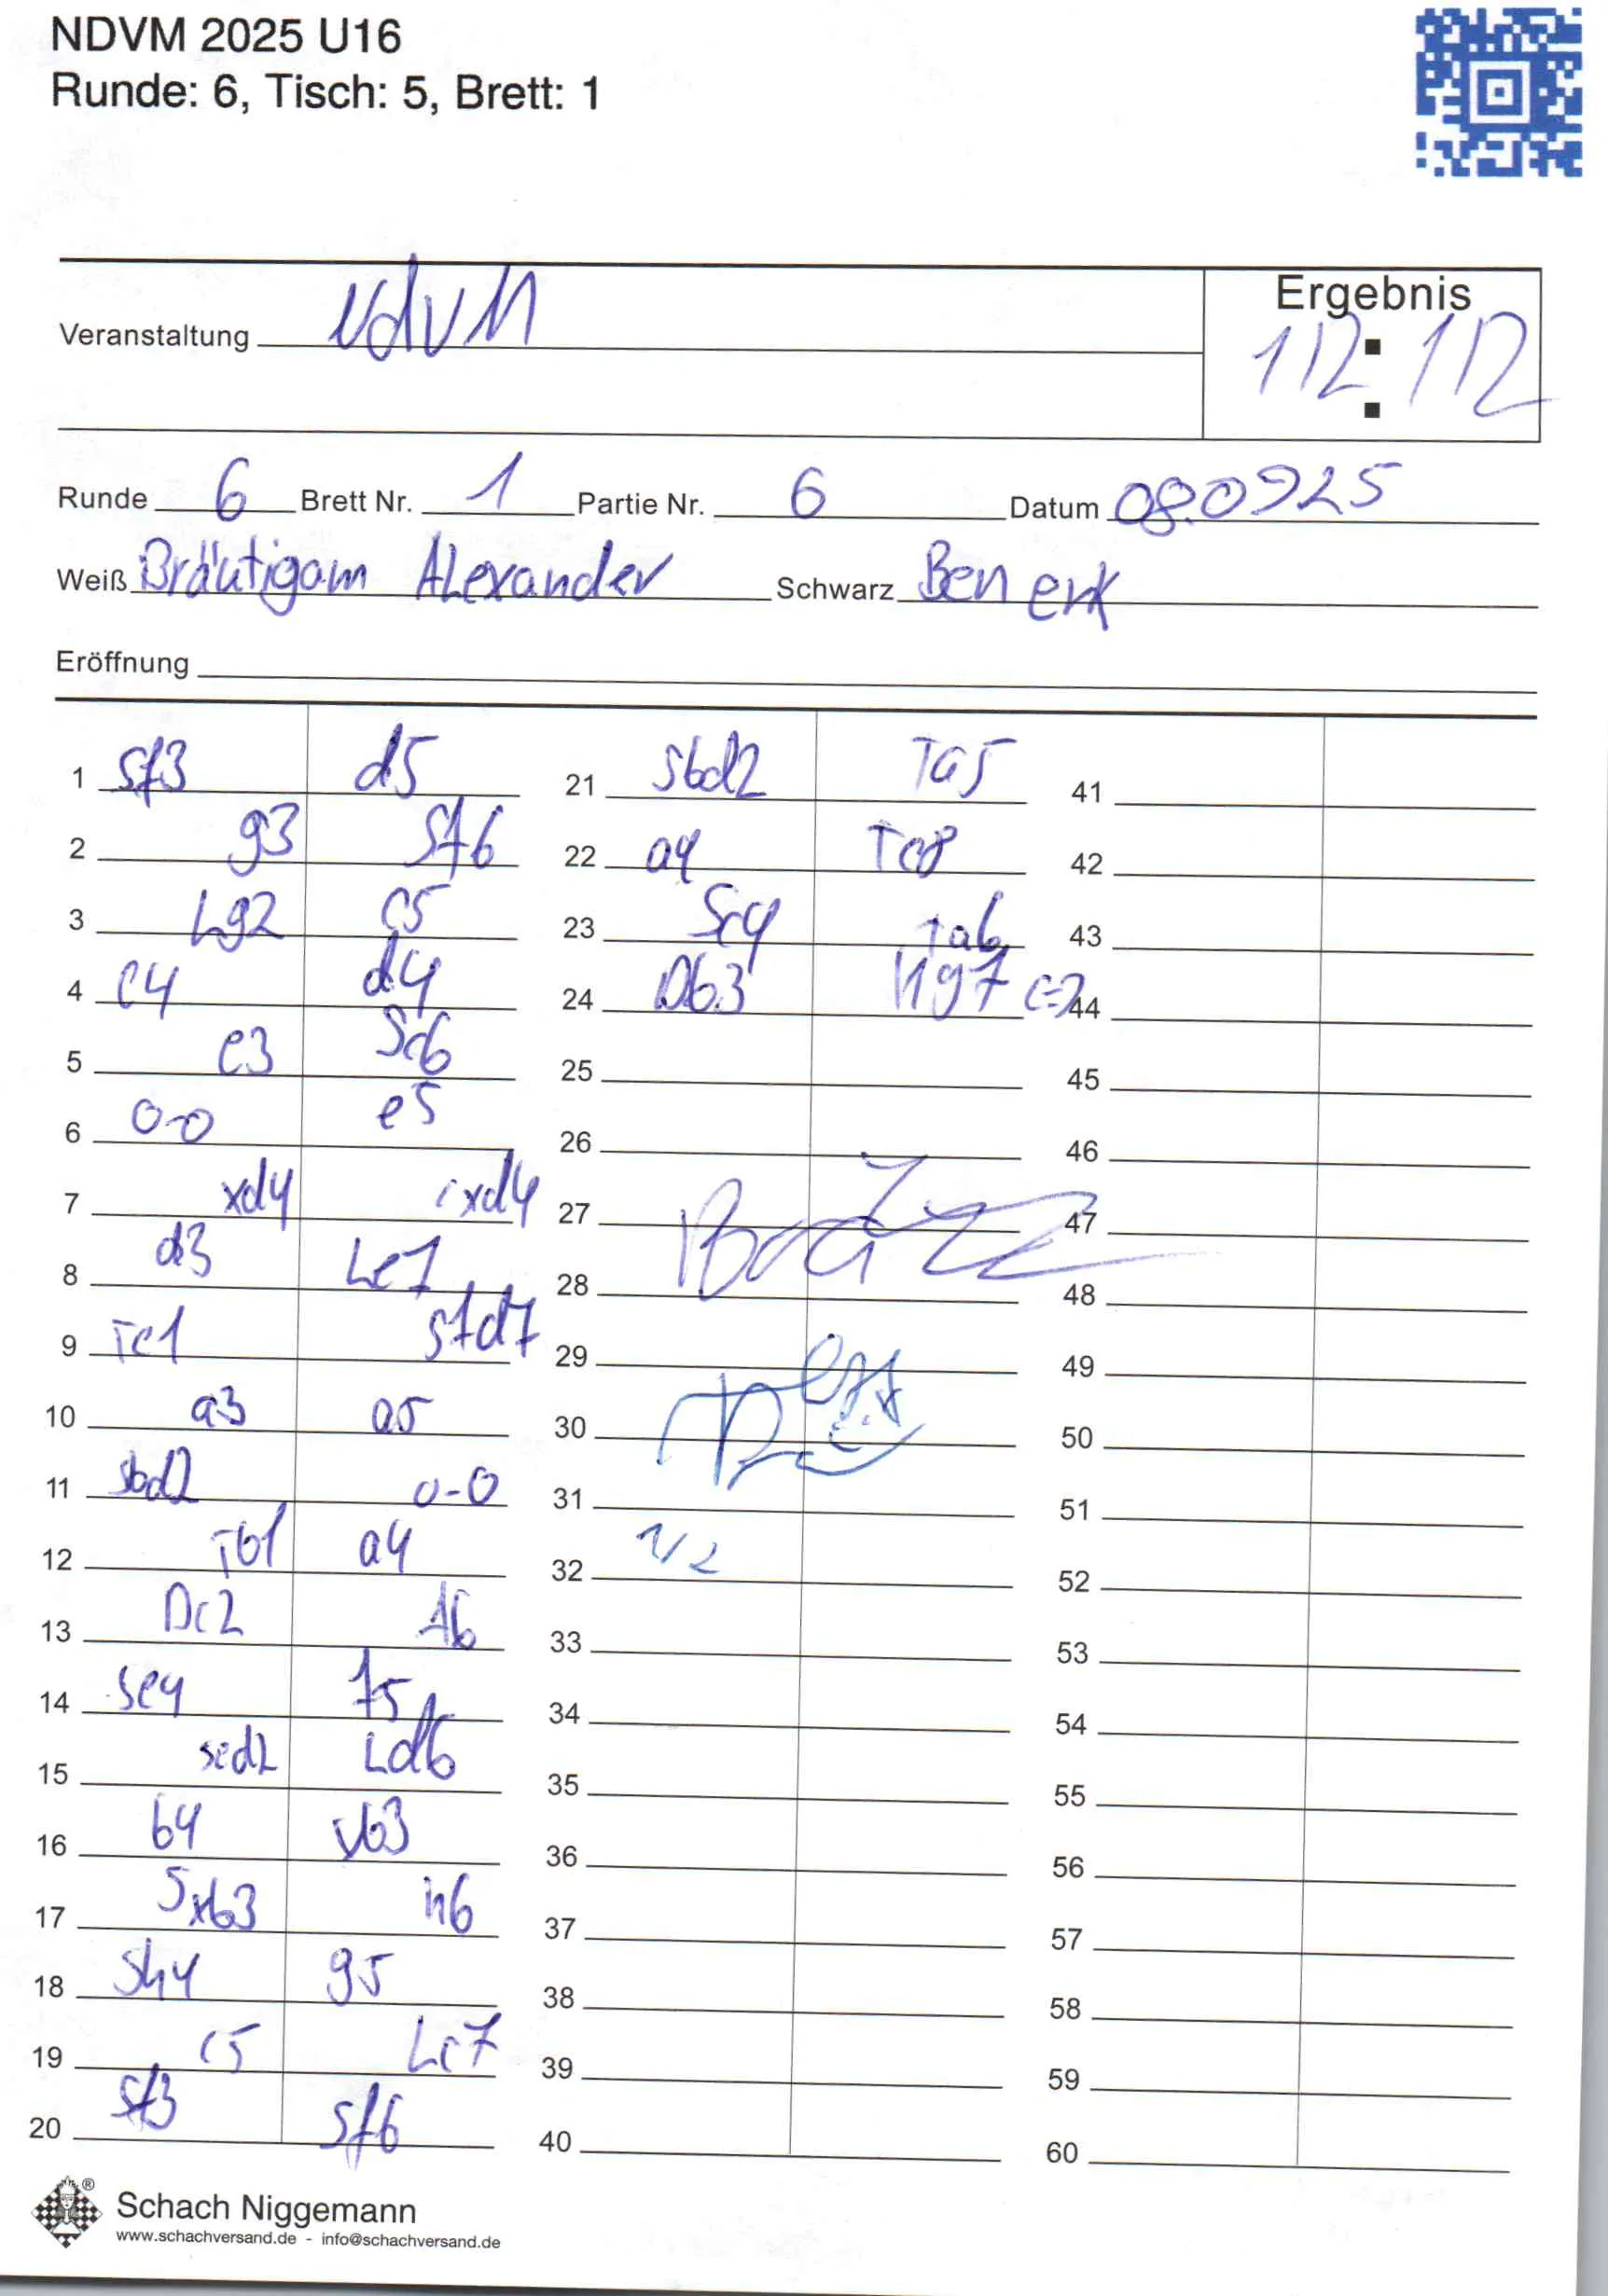 NDVM 2025 U16
Runde: 6, Tisch: 5, Brett: 1
Veranstaltung NdVM
Ergebnis
1/2 : 1/2
Runde 6 Brett Nr. 1 Partie Nr. 6 Datum 08.0925
Weiß Bräutigam Alexander Schwarz Ben erk
Eröffnung
1 Sf3 d5
2 g3 Sf6
3 Lg2 c5
4 c4 d4
5 e3 Sc6
6 0-0 e5
7 xd4 cxd4
8 d3 Le7
9 Te1 Sfd7
10 a3 a5
11 Sbd2 0-0
12 Tb1 a4
13 Dc2 f6
14 Se4 f5
15 Sed2 Ld6
16 b4 xb3
17 Sxb3 h6
18 Sh4 g5
19 c5 Lc7
20 Sf3 Sf6
21 Sbd2 Ta5
22 a4 Tc8
23 Sc4 Ta6
24 Db3 Kg7 (=)
25
26
27
28
29
30
31
32 1/2
33
34
35
36
37
38
39
40
41
42
43
44
45
46
47
48
49
50
51
52
53
54
55
56
57
58
59
60
®
Schach Niggemann
www.schachversand.de - info@schachversand.de